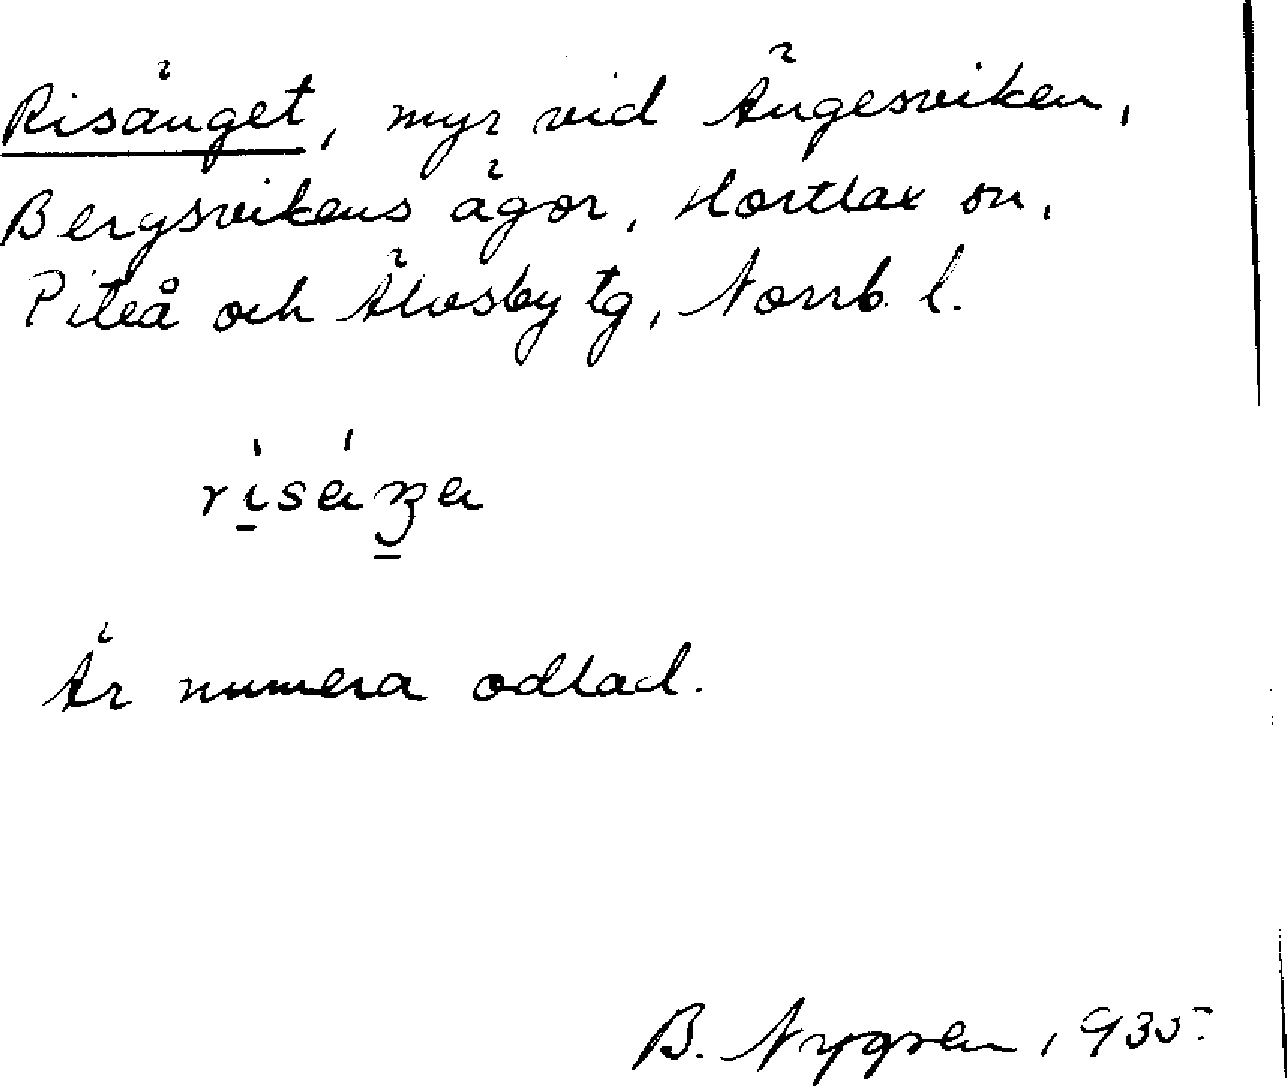 Risänget, myr vid Ängesviken,
Bergsvikens ägor, Hortlax sn,
Piteå och Älvsby tg, Norrb. l.
Är numera odlad.
B. Nygren, 1935.